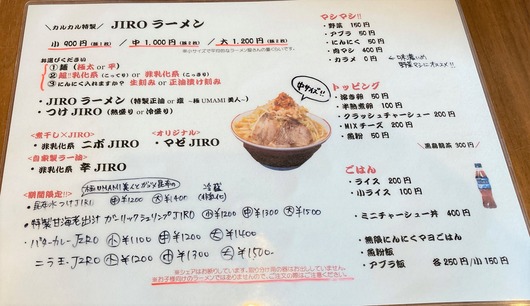 ＼カルカル特製／ JIROラーメン
小 900円(麺1枚) / 中 1,000円(麺2枚) / 大 1,200円(麺3枚)
お選びください
①麺(極太 or 平)
②超!乳化系(こってり) or 非乳化系(こっさり)
③にんにく入れますか? 生刻み or 正油漬け刻み
・JIRO ラーメン (特製正油 or 塩 ~極 UMAMI 美人~)
・つけ JIRO (熱盛り or 冷盛り)
<煮干し×JIRO>
・非乳化系 ニボ JIRO
<オリジナル>
・マゼ JIRO
<自家製ラー油>
・非乳化系 辛 JIRO
中サイズ!!
<期間限定!!>
・昆布水つけJIRO
中 ¥1200 大 ¥1400
・特製甘海老出汁 ガーリックシュリンプJIRO 小 ¥1100 中 ¥1300 大 ¥1500
・バターカレーJIRO 小 ¥1100 中 ¥1200 大 ¥1400
・ニラ玉JIRO 小 ¥1200 中 ¥1300 大 ¥1500
※お子様向けのラーメンではありませんので、ご注文の際はご注意ください。
マシマシ!!
・野菜 150円
・アブラ 50円
・にんにく 50円
・肉マシ 400円
・カラメ 0円
トッピング
・掻き卵 50円
・半熟煮卵 100円
・クラッシュチャーシュー 200円
・MIXチーズ 200円
・魚粉 50円
・黒烏龍茶 300円
ごはん
・ライス 200円
・小ライス 100円
・ミニチャーシュー丼 400円
・無限にんにくマヨごはん
・魚粉飯
・アブラ飯 各250円/小150円